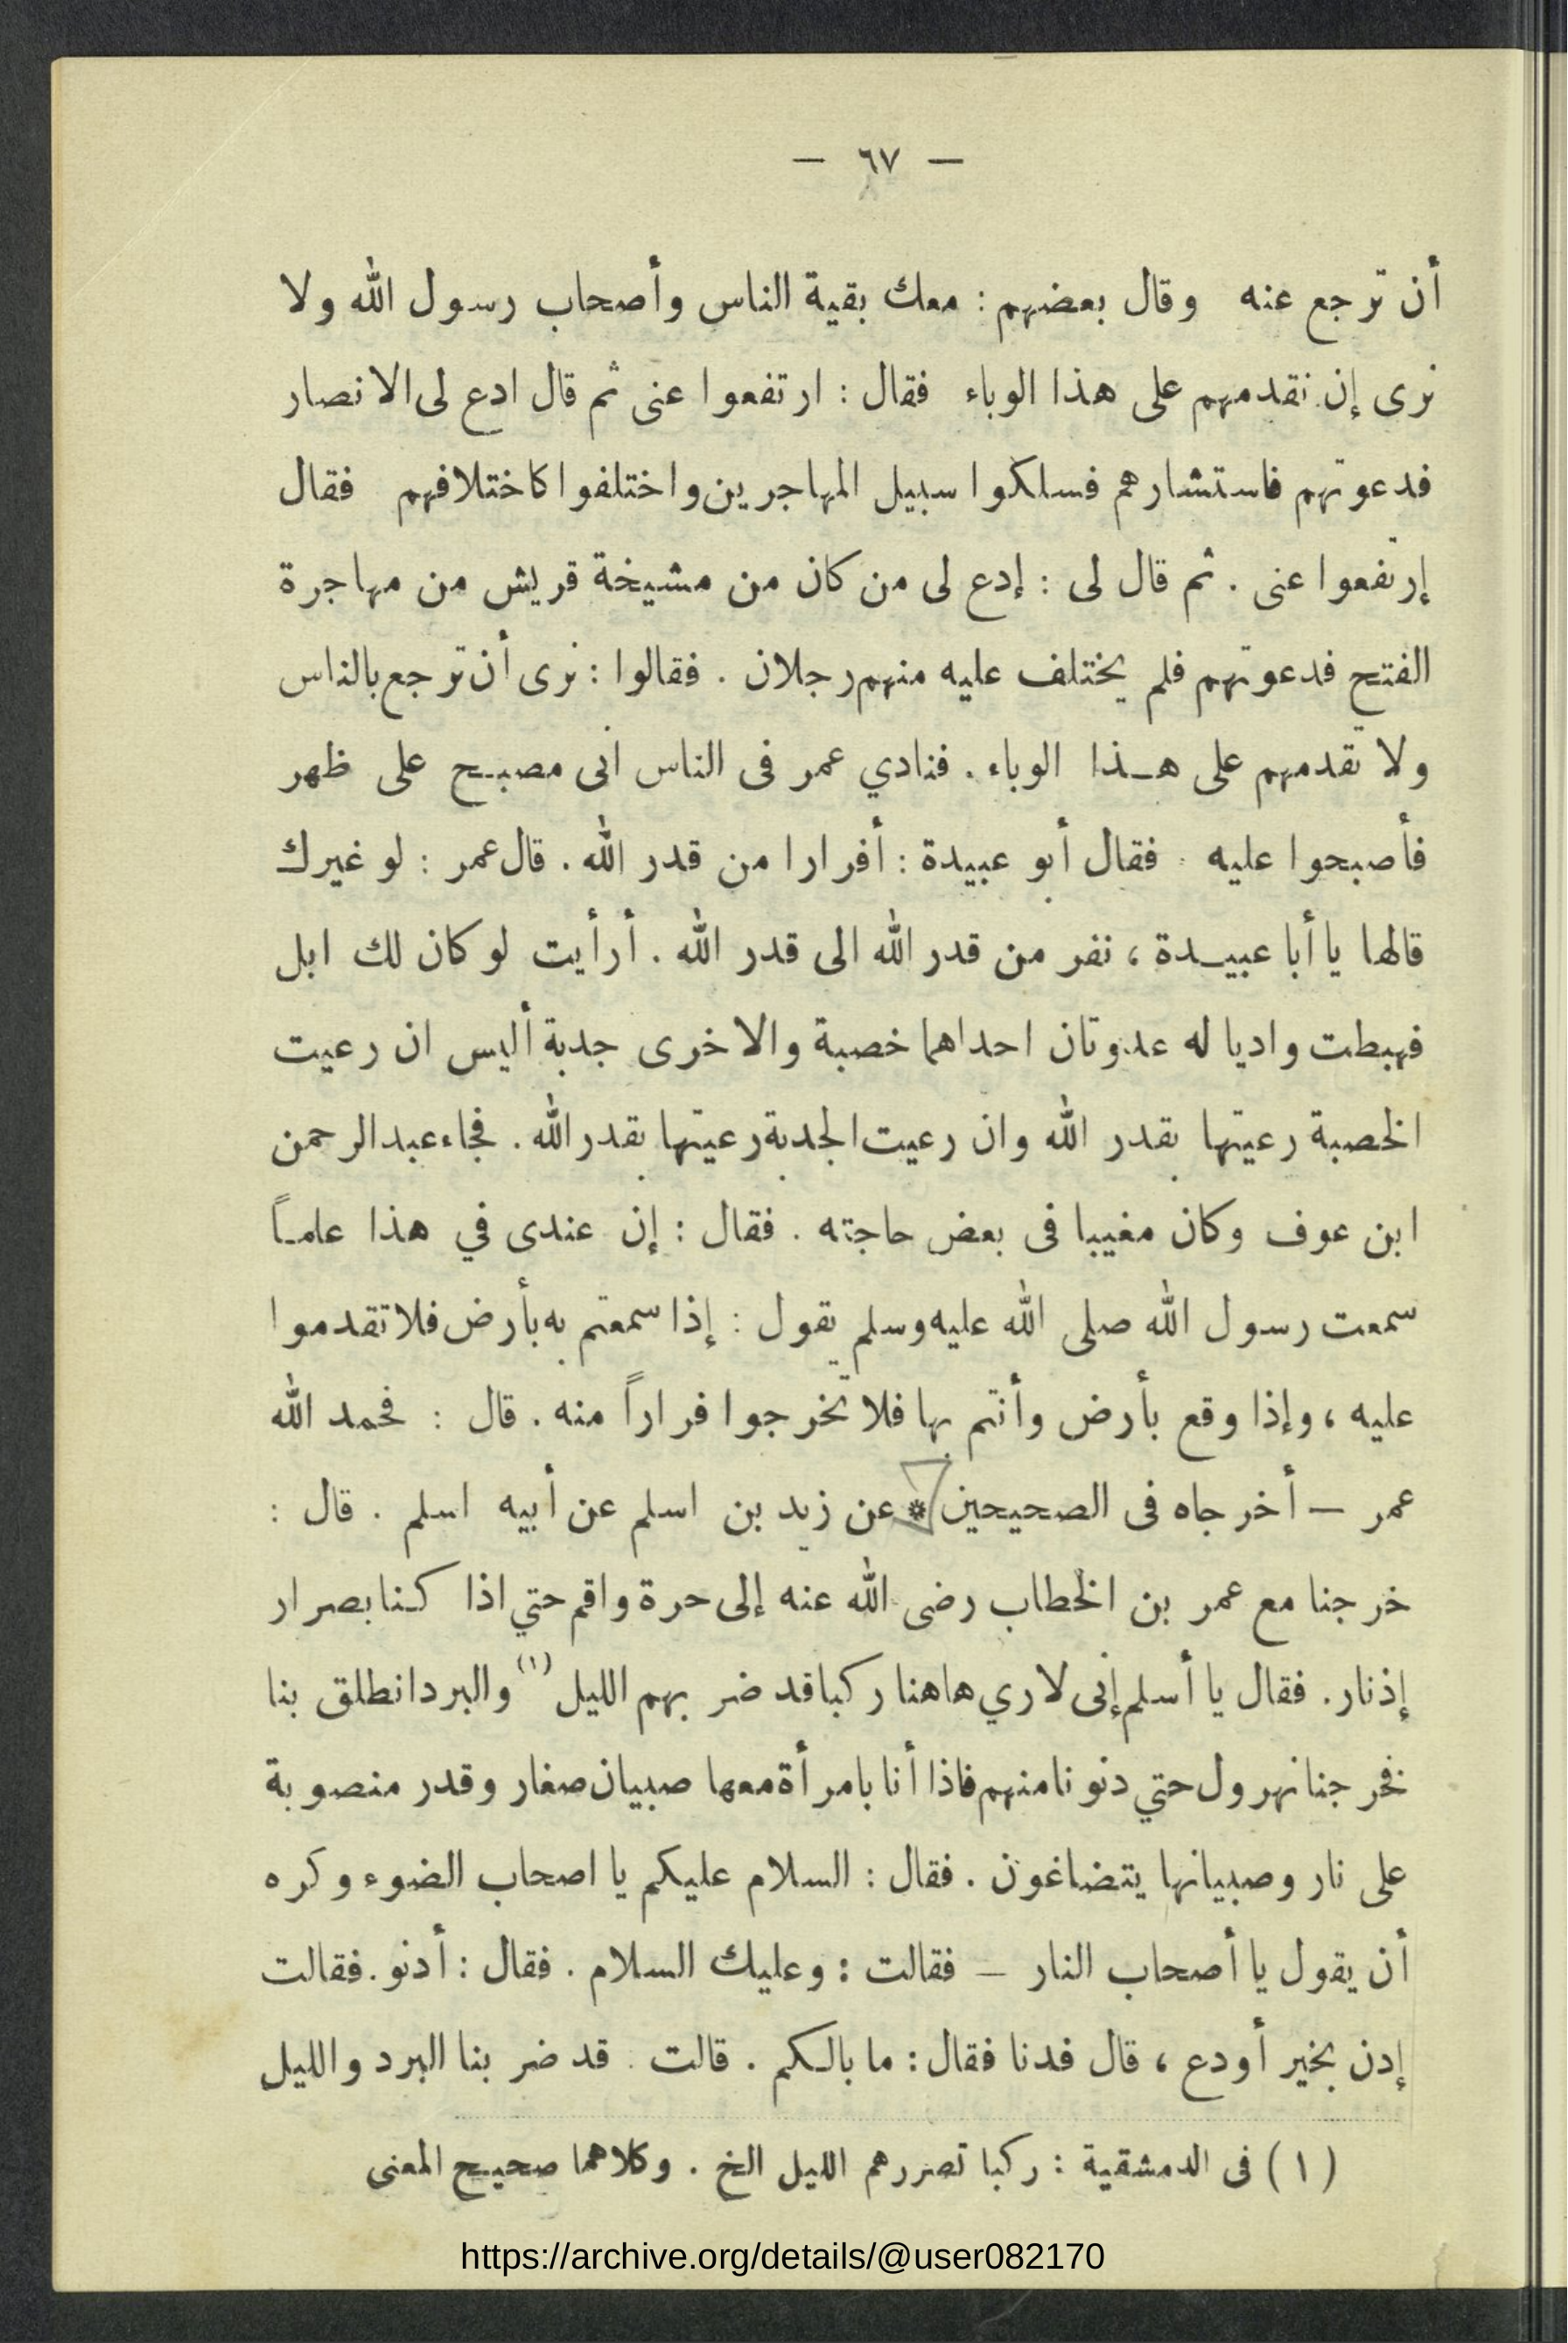 — ٦٧ —
أن ترجع عنه وقال بعضهم : معك بقية الناس وأصحاب رسول الله ولا
نرى إن نقدمهم على هذا الوباء فقال : ارتفعوا عنى ثم قال ادع لى الانصار
فدعوتهم فاستشارهم فسلكوا سبيل المهاجرين واختلفوا كاختلافهم فقال
إرتفعوا عنى . ثم قال لى : إدع لى من كان من مشيخة قريش من مهاجرة
الفتح فدعوتهم فلم يختلف عليه منهم رجلان . فقالوا : نرى أن ترجع بالناس
ولا تقدمهم على هـذا الوباء . فنادي عمر فى الناس انى مصبح على ظهر
فأصبحوا عليه . فقال أبو عبيدة : أفرارا من قدر الله . قال عمر : لو غيرك
قالها يا أبا عبيـدة ، نفر من قدر الله الى قدر الله . أرأيت لو كان لك ابل
فهبطت واديا له عدوتان احداهما خصبة والاخرى جدبة أليس ان رعيت
الخصبة رعيتها بقدر الله وان رعيت الجدبة رعيتها بقدر الله . فجاء عبد الرحمن
ابن عوف وكان مغيبا فى بعض حاجته . فقال : إن عندى في هذا علمـاً
سمعت رسول الله صلى الله عليه وسلم يقول : إذا سمعتم به بأرض فلا تقدموا
عليه ، وإذا وقع بأرض وأنتم بها فلا تخرجوا فراراً منه . قال : فحمد الله
عمر – أخرجاه فى الصحيحين * عن زيد بن اسلم عن أبيه اسلم . قال :
خرجنا مع عمر بن الخطاب رضى الله عنه إلى حرة واقم حتي اذا كنا بصرار
إذ نار . فقال يا أسلم إنى لاري هاهنا ركبا قد ضر بهم الليل (١) والبرد انطلق بنا
فخرجنا نهرول حتي دنونا منهم فاذا أنا بامرأة معها صبيان صغار وقدر منصوبة
على نار وصبيانها يتضاغون . فقال : السلام عليكم يا اصحاب الضوء وكره
أن يقول يا أصحاب النار – فقالت : وعليك السلام . فقال : أدنو . فقالت
إدن بخير أودع ، قال فدنا فقال : ما بالكم . قالت . قد ضر بنا البرد والليل
(١) فى الدمشقية : ركبا تصررهم الليل الخ . وكلاهما صحيح المعنى
https://archive.org/details/@user082170